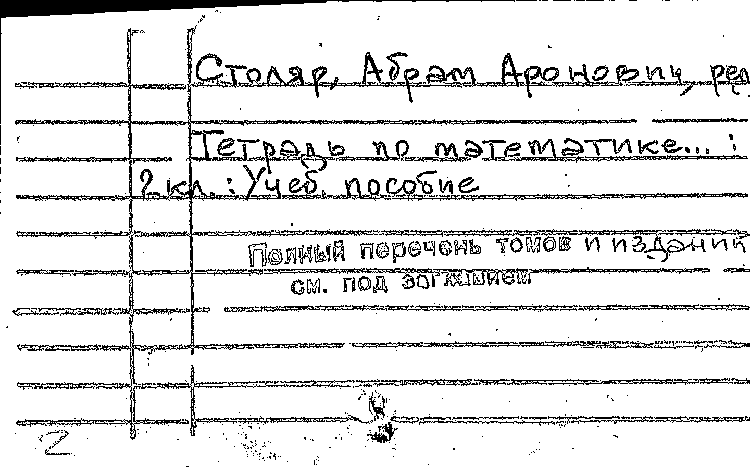 Столяр, Абрам Аронович, ред
Тетрадь по математике... :
2 кл. : Учеб. пособие
Полный перечень томов и изданий
см. под заглавием
2